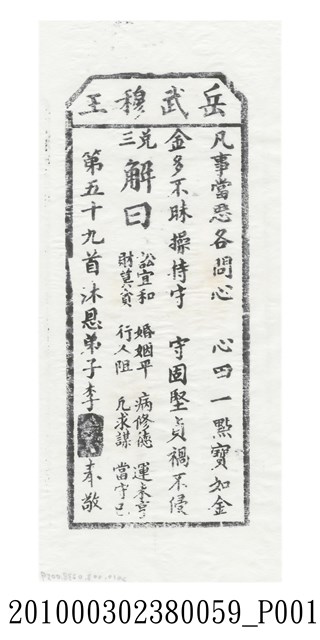 岳武穆王
凡事當忍各問心 心田一點寶如金
金多不昧操持守 守固堅貞禍不侵
兌三 解曰
訟宜和 婚姻平 病修德 運未亨
財莫貪 行人阻 凡求謀 當守己
第五十九首沐恩弟子李 奉敬
201000302380059_P001